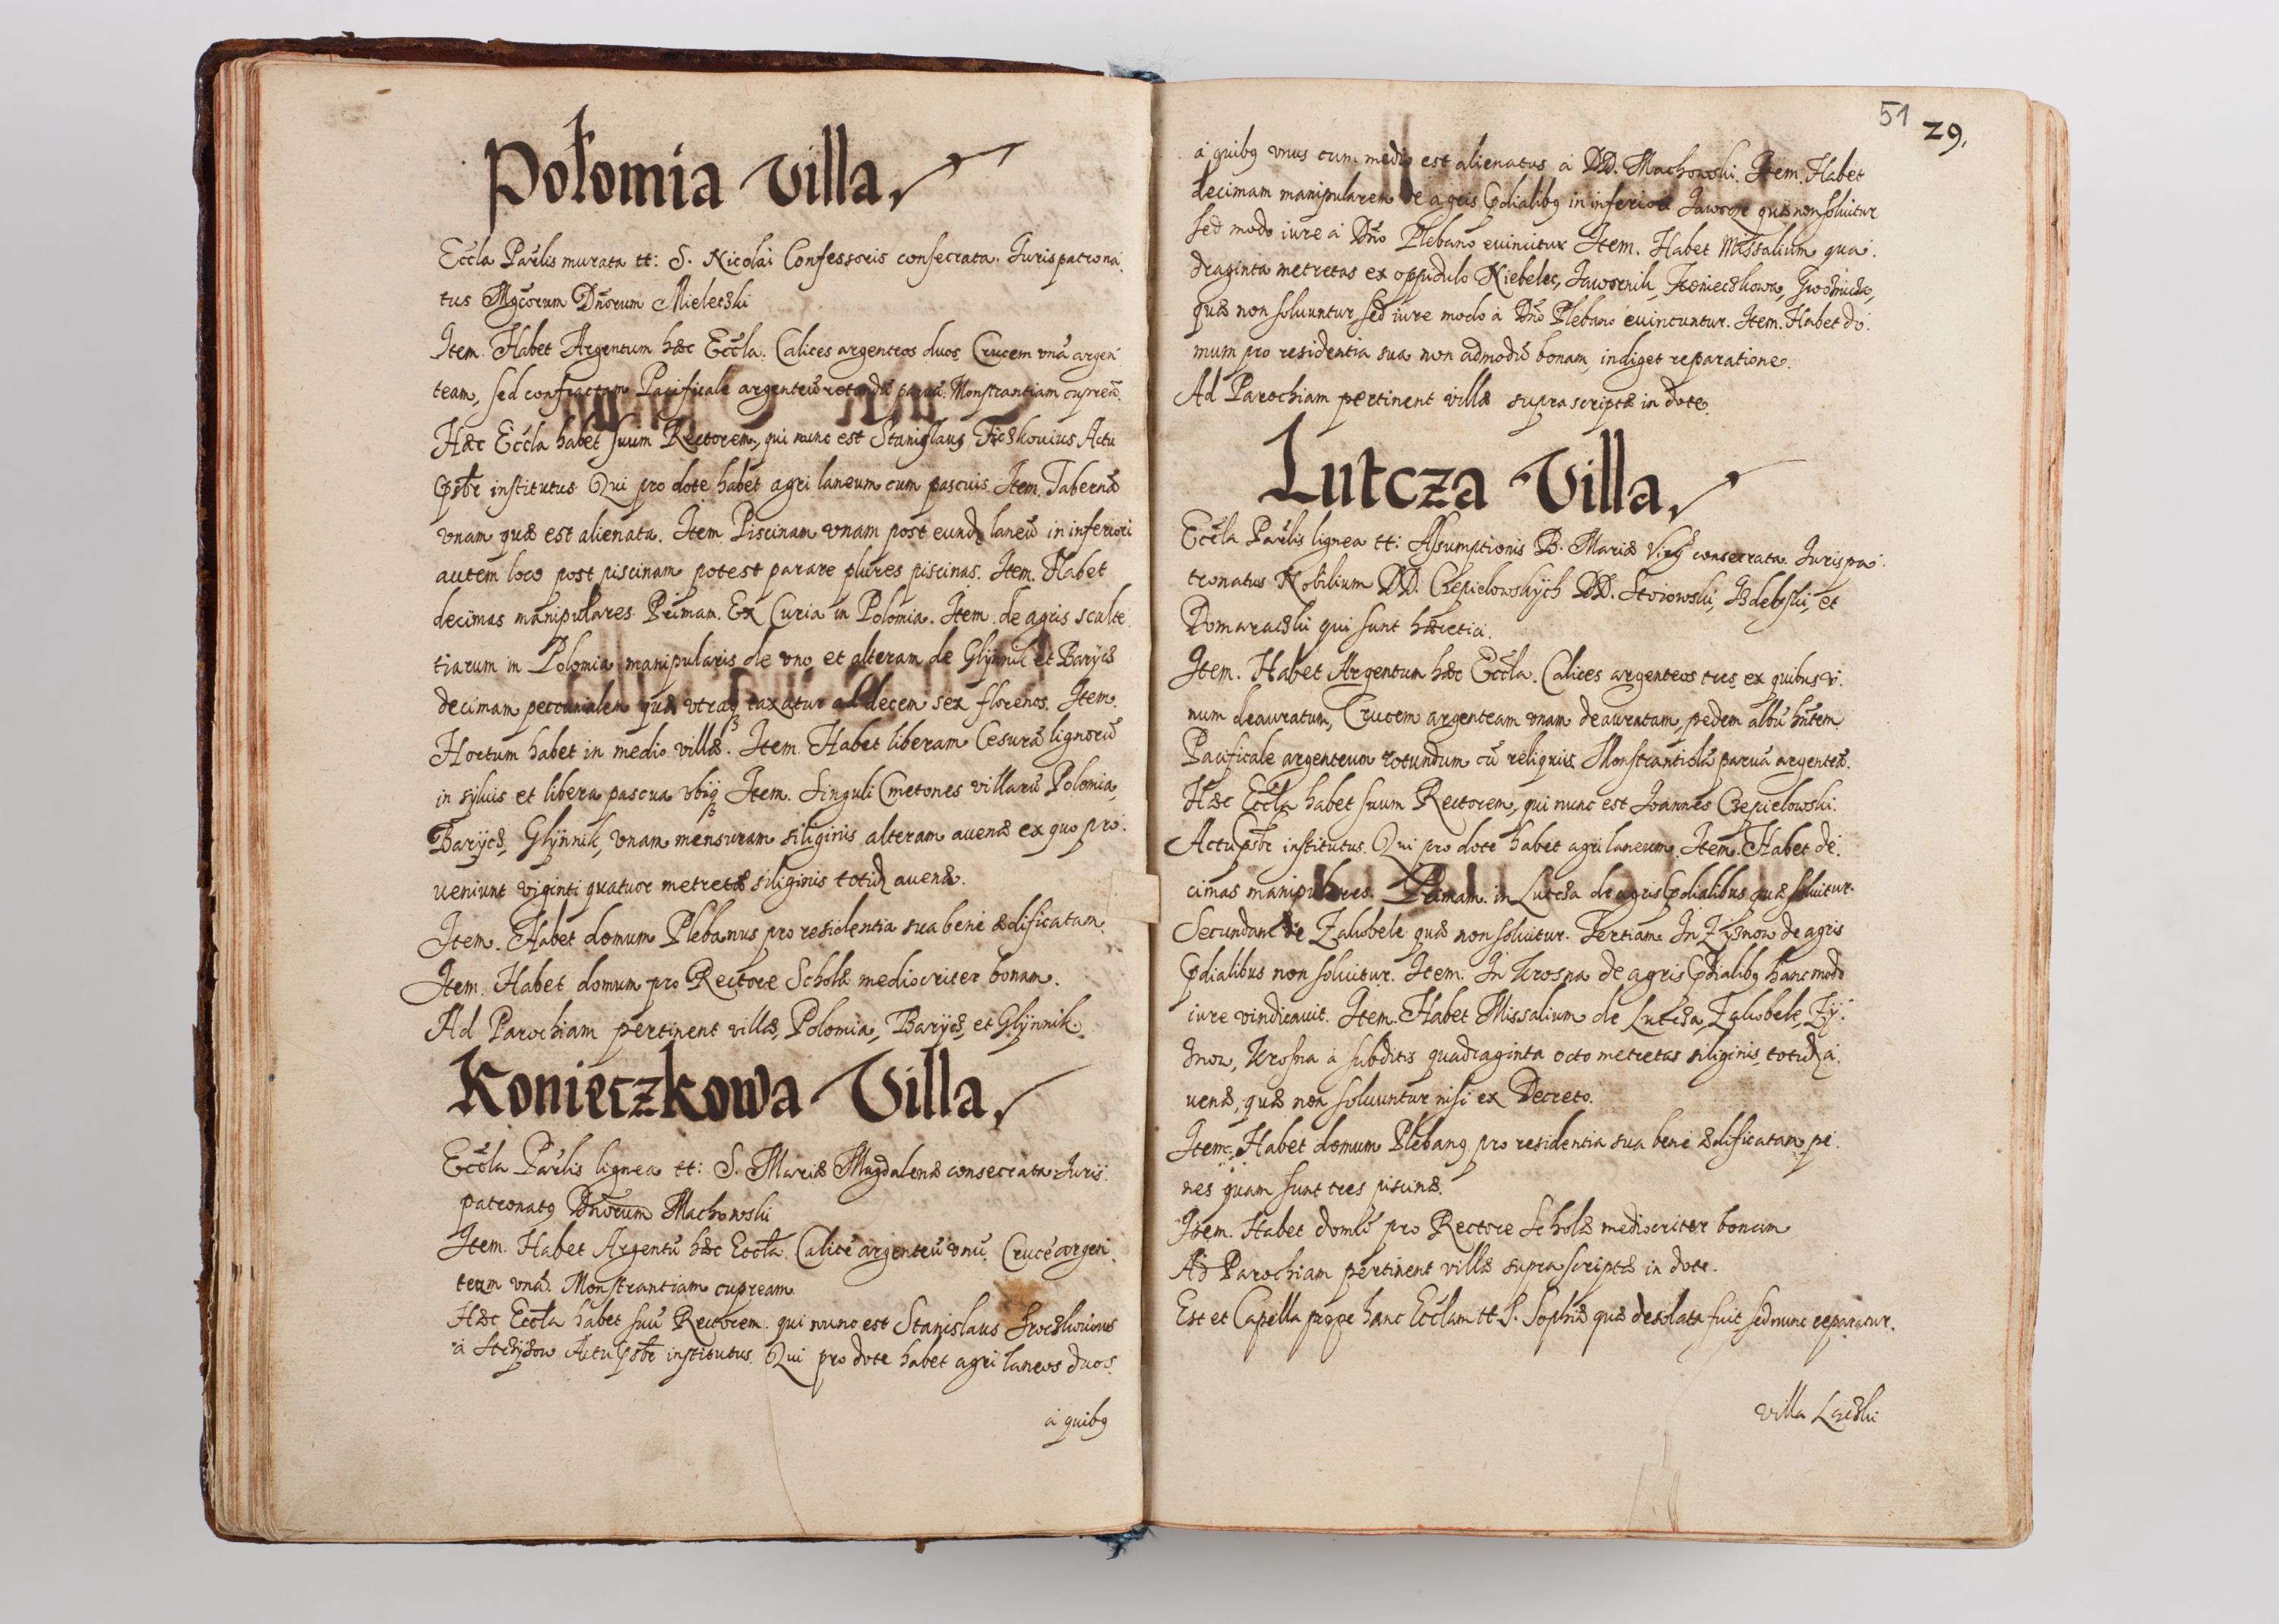 Połomia Villa
Eccła Parlis murata tt: S. Nicolai Confessoris consecrata. Juris patrona:
tus Mgcorum Dnorum Mieleczki
Item. Habet Argentum hæc Eccla. Calices argenteos duos, Crucem vnã argen:
team, sed confractam Pacificale argenteũ rotundũ paruũ. Monstrantiam cupreã.
Hæc Eccla habet suum Rectorem, qui nunc est Stanislaus Actu
Prsbr institutus Qui pro dote habet agri laneum cum pascuis. Item. Tabernã
vnam quæ est alienata. Item Piscinam vnam post eund laneũ in inferiori
autem loco post piscinam potest parare plures piscinas. Item. Habet
decimas manipulares. Primam. Ex Curia in Polomia. Item. de agris sculte:
tiarum in Polomia manipularis de vno, et alteram de Glynnik et Barycz
decimam peccunialem quæ vtraq taxatur ad decem sex florenos. Item.
Hortum habet in medio villæ. Item. Habet liberam Cesurã lignorũ
in syluis et libera pascua vbiq Item. Singuli Cmetones villarũ Polomia,
Barycz, Glynnik, vnam mensuram siliginis alteram auenæ ex quo pro:
ueniunt viginti quatuor metretæ siliginis totid auenæ.
Item. Habet domum Plebanus pro residentia sua bene ædificatam.
Item. Habet domum pro Rectore Scholæ mediocriter bonam.
Ad Parochiam pertinent villæ, Polomia, Barycz, et Glynnik.
Konieczkowa Villa
Eccla Parlis lignea tt: S. Mariæ Magdalenæ consecrata Juris:
patronatq Dnorum Machowski
Item. Habet Argentũ hæc Eccła. Calicẽ argenteũ vnũ. Crucẽ argen:
team vnã. Monstrantiam cupream.
Hæc Eccla habet suũ Rectorem. qui nunc est Stanislaus
à Strzyzow Actu Prsbr institutus. Qui pro dote habet agri laneos duos.
à quibq
51 29.
à quibq vnus cum medio est alienatus à DD. Machowski. Item. Habet
decimam manipularem de agris prdialibq in inferiori Jawornik quæ non soluitur
sed modo iure à Dno Plebano euincitur Item. Habet Missalium qua:
draginta metretas ex oppidulo Niebelec, Jawornik, Konieczkowa, Gwoznicza,
quæ non soluuntur sed iure modo à Dno Plebano euincuntur. Item. Habet do:
mum pro residentia sua non admodũ bonam, indiget reparatione.
Ad Parochiam pertinent villæ supra scriptæ in dote.
Lutcza Villa
Eccla Parlis lignea tt: Assumptionis B. Mariæ Virg consecrata. Juris pa:
tronatus Nobilium DD. Czepielowskych DD. Stoiowski, Izdebski, et
Domaraczki qui sunt hæretici.
Item. Habet Argentum hæc Eccla. Calices argenteos tres, ex quibus v:
num deauratum, Crucem argenteam vnam deauratam, pedem albũ hntem
Pacificale argenteum rotundum cũ reliquiis Monstrantiolã paruã argenteã.
Hæc Eccla habet suum Rectorem, qui nunc est Joannes Czepielowski.
Actu Prsbr institutus. Qui pro dote habet agri laneum. Item. Habet de:
cimas manipulares. Primam. in Lutcza de agris prdialibus quæ soluitur.
Secundam de Zalobele quæ non soluitur. Tertiam. In Zyznow de agris
prdialibus non soluitur. Item. In Krosna de agris prdialibq hanc modo
iure vindicauit. Item. Habet Missalium de Lutcza, Zalobele, Zy:
znow, Krosna à subditis quadraginta octo metretas siliginis, totid a:
uenæ, quæ non soluuntur nisi ex Decreto.
Item. Habet domum Plebanq pro residentia sua bene ædificatam, pe:
nes quam sunt tres piscinæ.
Item. Habet domũ pro Rectore Scholæ mediocriter bonam
Ad Parochiam pertinent villæ supra scriptæ in dote.
Est et Capella prope hanc Ecclam tt S. Sophiæ quæ desolata fuit, sed nunc reparatur.
Villa Laczki